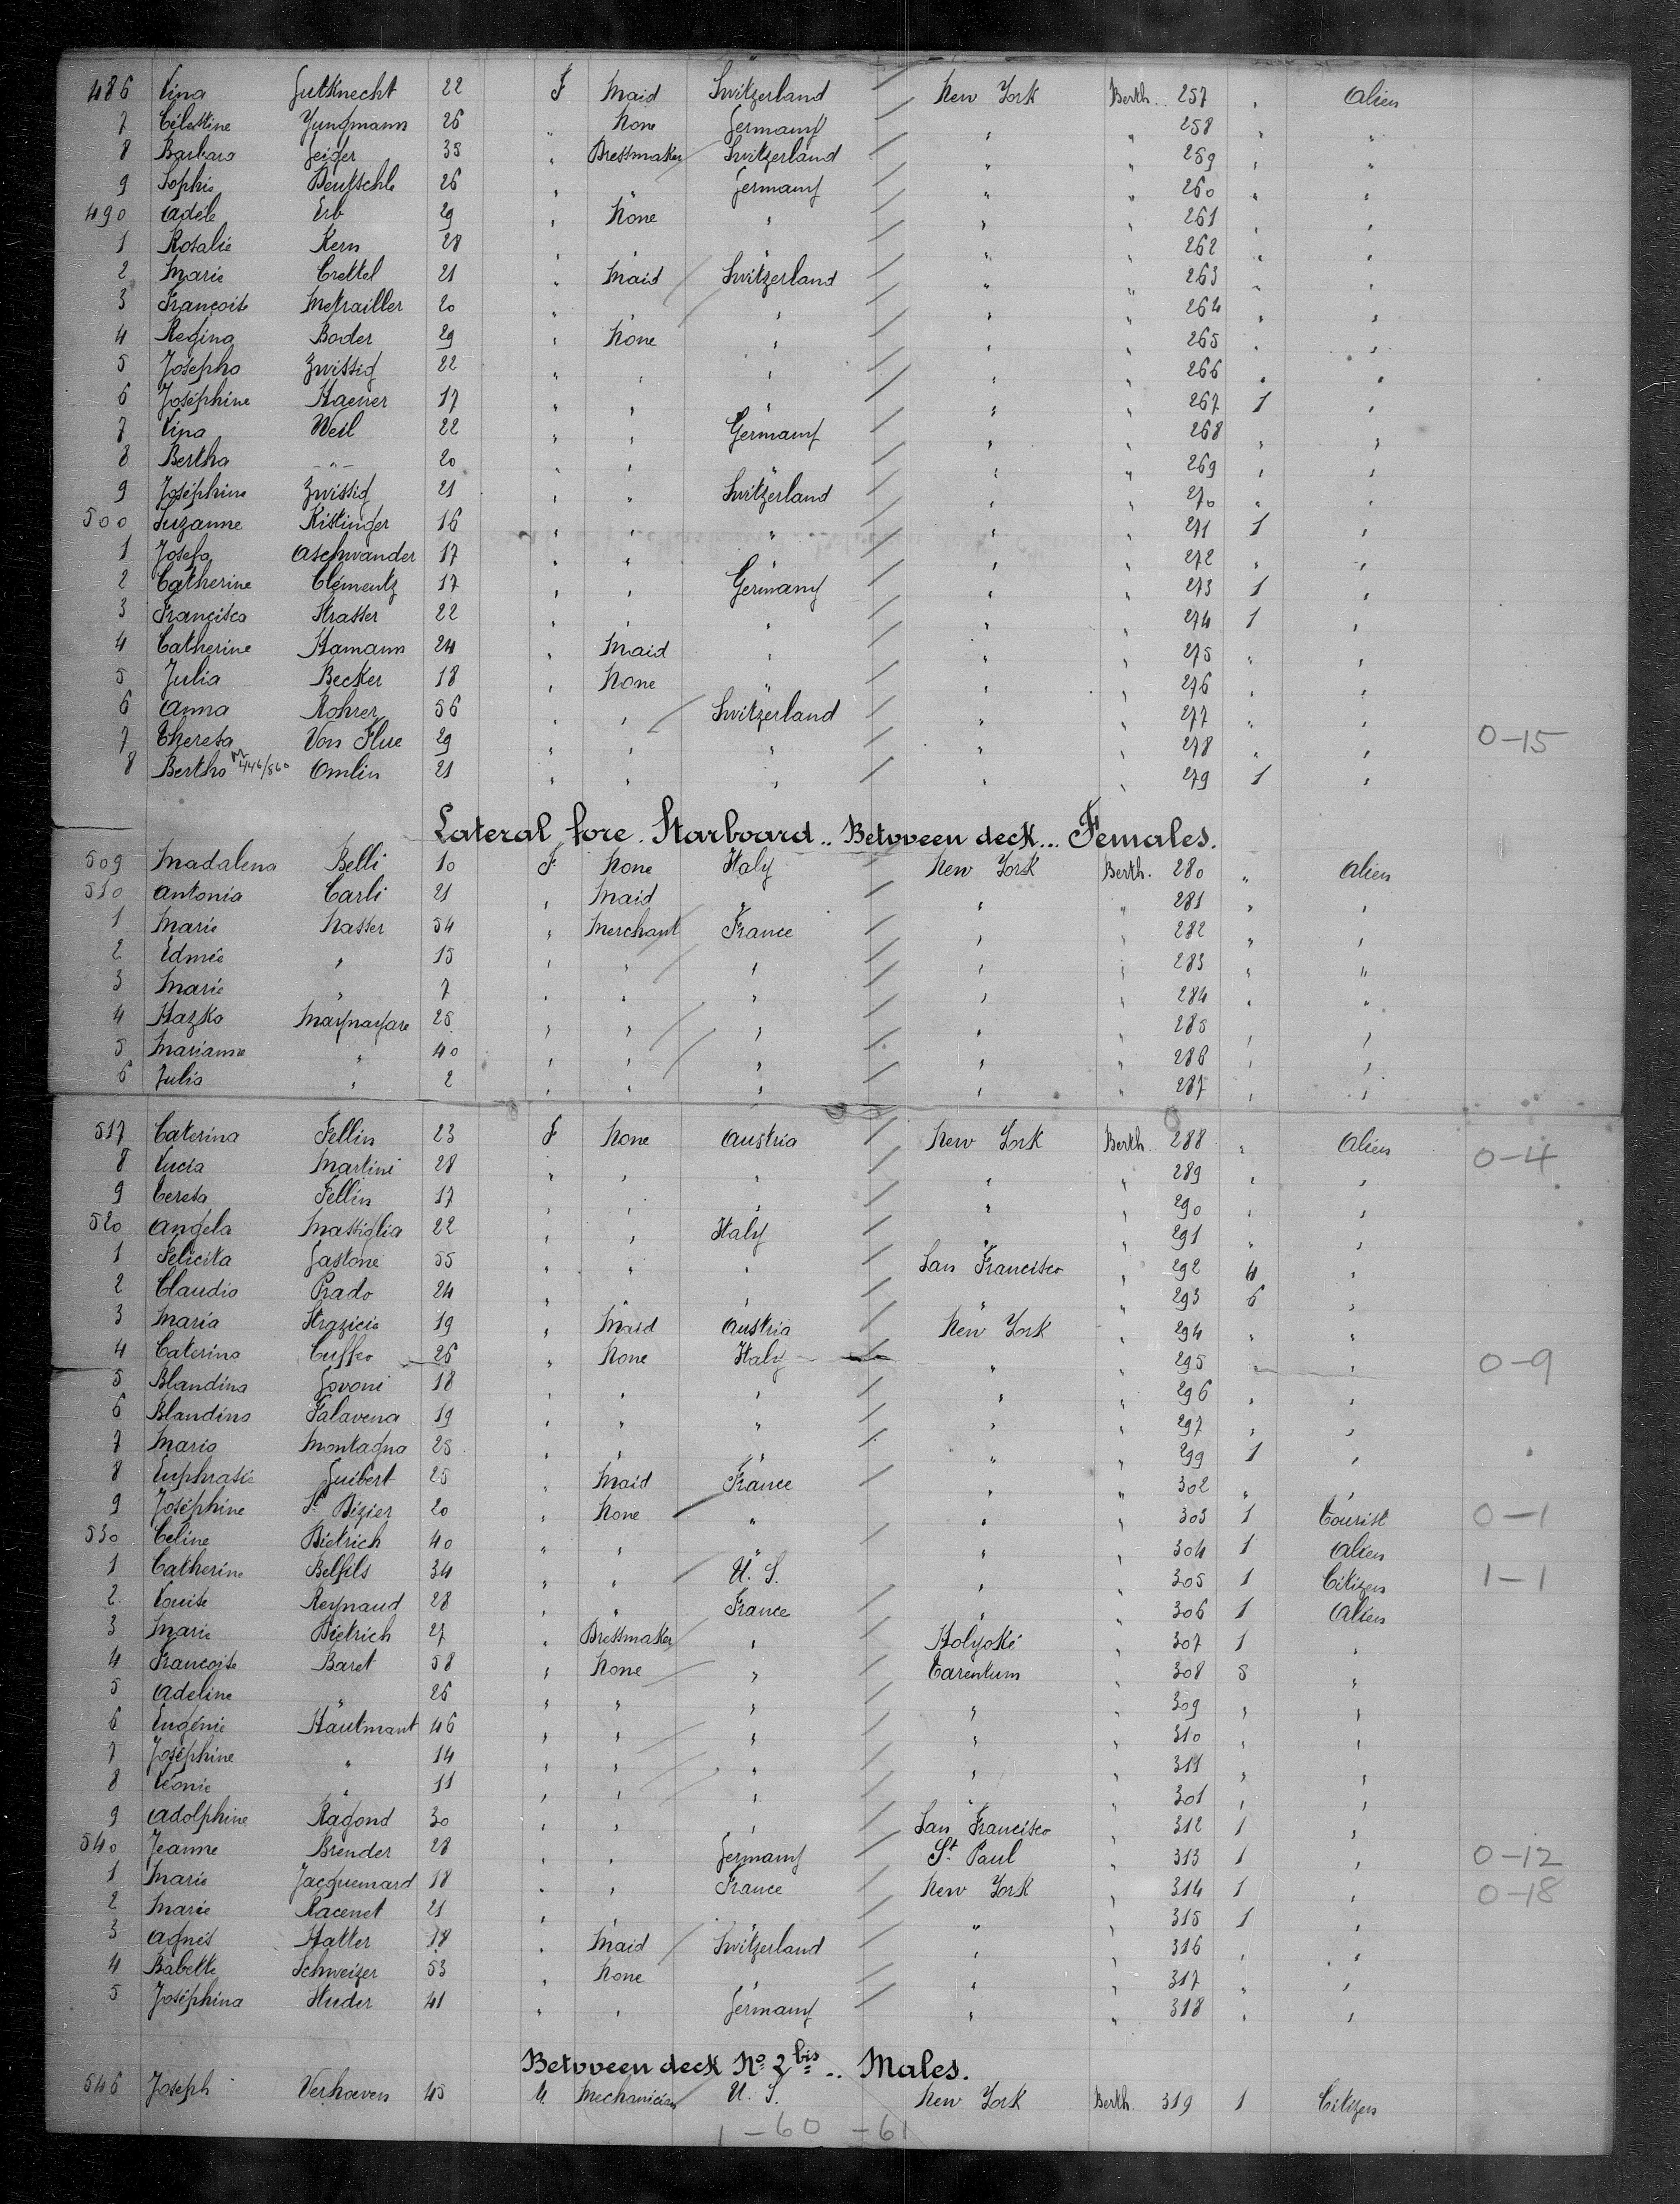 486 Lina Gutknecht 22 F Maid Switzerland / New York Berth. 257 " Alien
7 Célestine Jungmann 26 " None Germany / " " 258 " "
8 Barbara Geiger 35 " Dressmaker Switzerland / " " 259 " "
9 Sophie Deutschle 26 " " Germany / " " 260 " "
490 Adèle Erb 29 " None " / " " 261 " "
1 Rosalie Kern 28 " " " / " " 262 " "
2 Marie Crettol 21 " Maid / Switzerland / " " 263 " "
3 Françoise Metrailler 20 " " / " / " " 264 " "
4 Regina Boder 29 " None " / " " 265 " "
5 Josepha Zwissig 22 " " " / " " 266 " "
6 Joséphine Haener 17 " " " / " " 267 1 "
7 Lina Weil 22 " " Germany / " " 268 " "
8 Bertha -"- 20 " " " / " " 269 " "
9 Joséphine Zwissig 21 " " Switzerland / " " 270 " "
500 Suzanne Kistinger 16 " " " / " " 271 1 "
1 Josefa Aschwander 17 " " " / " " 272 " "
2 Catherine Clémentz 17 " " Germany / " " 273 1 "
3 Francisca Strasser 22 " " " / " " 274 1 "
4 Catherine Hamann 24 " Maid " / " " 275 " "
5 Julia Becker 18 " None " / " " 276 " "
6 Anna Rohrer 56 " " / Switzerland / " " 277 " "
7 Theresa Von Flue 29 " " " / " " 278 " " 0-15
8 Bertha 446/560 Omlin 21 " " " / " " 279 1 "
Lateral fore. Starboard.. Between deck... Females.
509 Madalena Belli 10 F None Italy / New York Berth. 280 " Alien
510 Antonia Carli 21 " Maid " / " " 281 " "
1 Marie Nasser 54 " Merchant France / " " 282 " "
2 Edmée " 15 " " / " / " " 283 " "
3 Marie " 7 " " " / " " 284 " "
4 Hazka 25 " " / " / " " 285 " "
5 Marianna " 40 " " / " / " " 286 " "
6 Julia " 2 " " " / " " 287 " "
517 Caterina Fellin 23 F None Austria / New York Berth. 288 " Alien 0-4
8 Lucia Martini 28 " " " / " " 289 " "
9 Teresa Fellin 17 " " " / " " 290 " "
520 Angela Massiglia 22 " " Italy / " " 291 " "
1 Felicita Gastone 55 " " " / San Francisco " 292 4 "
2 Claudia Prado 24 " " " / " " 293 6 "
3 Maria Strazicia 19 " Maid Austria / New York " 294 " "
4 Caterina Cuffeo 26 " None Italy " " 295 " " 0-9
5 Blandina Govoni 18 " " " / " " 296 " "
6 Blandina Falavena 19 " " " / " " 297 " "
7 Maria Montagna 25 " " " / " " 299 1 "
8 Euphrasie Guibert 25 " Maid France / " " 302 " "
9 Joséphine St Dizier 20 " None / " " " 303 1 Tourist 0-1
530 Celine Dietrich 40 " " " / " " 304 1 Alien
1 Catherine Belfils 34 " " / U. S. " " 305 1 Citizen 1-1
2 Louise Reynaud 28 " " France / " " 306 1 Alien
3 Marie Dietrich 27 " Dressmaker " / Holyoké " 307 1 "
4 Françoise Baret 58 " None / " / Tarentum " 308 5 "
5 Adeline " 26 " " " / " " 309 " "
6 Eugénie Hautmant 46 " " / " / " " 310 " "
7 Joséphine " 14 " " / " / " " 311 " "
8 Léonie " 11 " " / " / " " 301 " "
9 Adolphine Ragond 30 " " " / San Francisco " 312 1 "
540 Jeanne Brender 28 " " Germany / St. Paul " 313 1 " 0-12
1 Marie Jacquemard 18 " " France / New York " 314 1 " 0-18
2 Marie Racenet 21 " " " / " " 315 1 "
3 Agnès Hatter 18 " Maid / Switzerland / " " 316 " "
4 Babette Schweizer 53 " None " / " " 317 " "
5 Joséphina Huder 41 " " Germany / " " 318 " "
Between deck No. 2 bis.. Males.
546 Joseph Verhoeven 45 M. Mechanician U. S. New York Berth. 319 1 Citizen
1-60-61